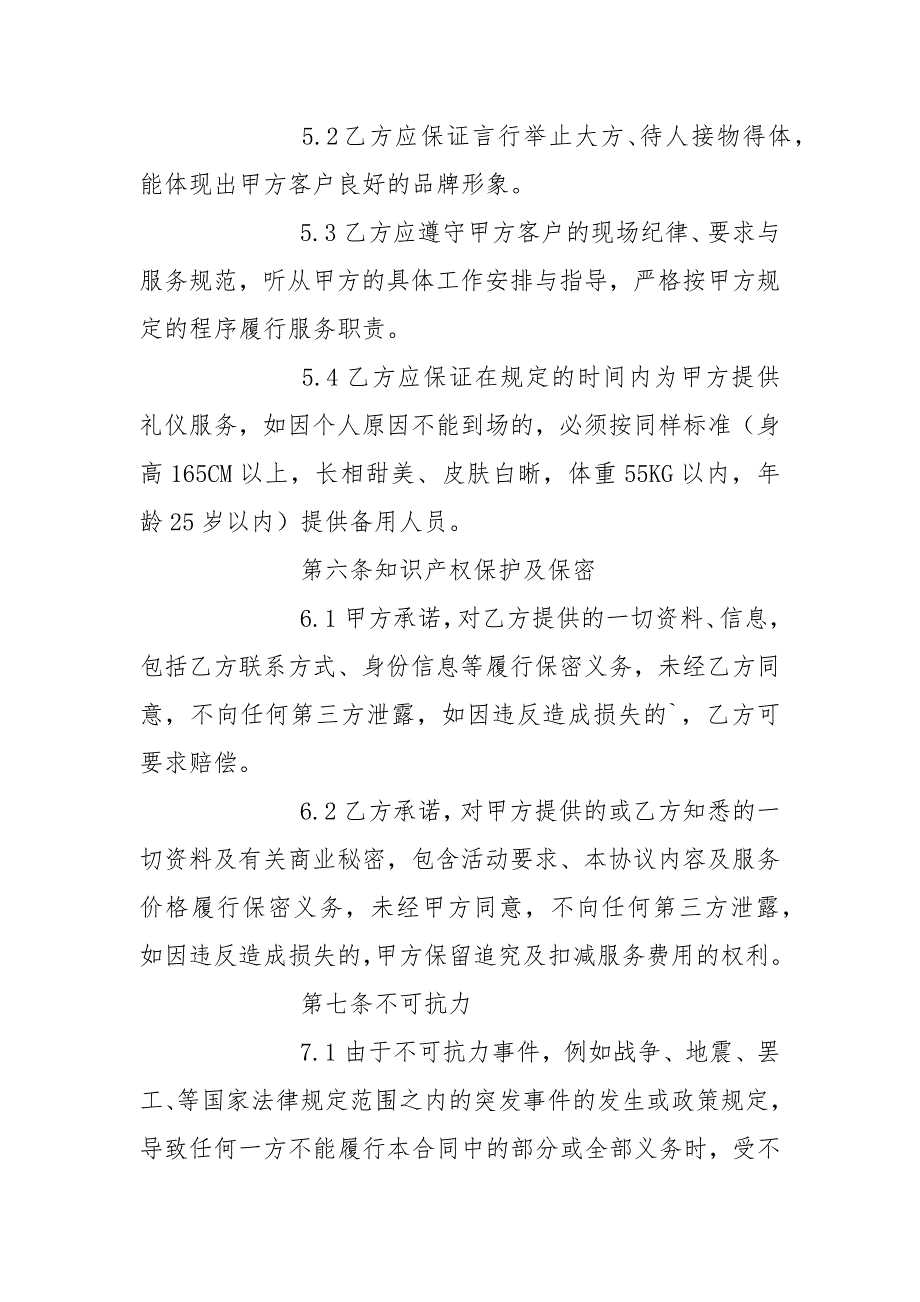 5.2乙方应保证言行举止大方、待人接物得体，
能体现出甲方客户良好的品牌形象。
5.3乙方应遵守甲方客户的现场纪律、要求与
服务规范，听从甲方的具体工作安排与指导，严格按甲方规
定的程序履行服务职责。
5.4乙方应保证在规定的时间内为甲方提供
礼仪服务，如因个人原因不能到场的，必须按同样标准（身
高165CM以上，长相甜美、皮肤白晰，体重55KG以内，年
龄25岁以内）提供备用人员。
第六条知识产权保护及保密
6.1甲方承诺，对乙方提供的一切资料、信息，
包括乙方联系方式、身份信息等履行保密义务，未经乙方同
意，不向任何第三方泄露，如因违反造成损失的`，乙方可
要求赔偿。
6.2乙方承诺，对甲方提供的或乙方知悉的一
切资料及有关商业秘密，包含活动要求、本协议内容及服务
价格履行保密义务，未经甲方同意，不向任何第三方泄露，
如因违反造成损失的，甲方保留追究及扣减服务费用的权利。
第七条不可抗力
7.1由于不可抗力事件，例如战争、地震、罢
工、等国家法律规定范围之内的突发事件的发生或政策规定，
导致任何一方不能履行本合同中的部分或全部义务时，受不